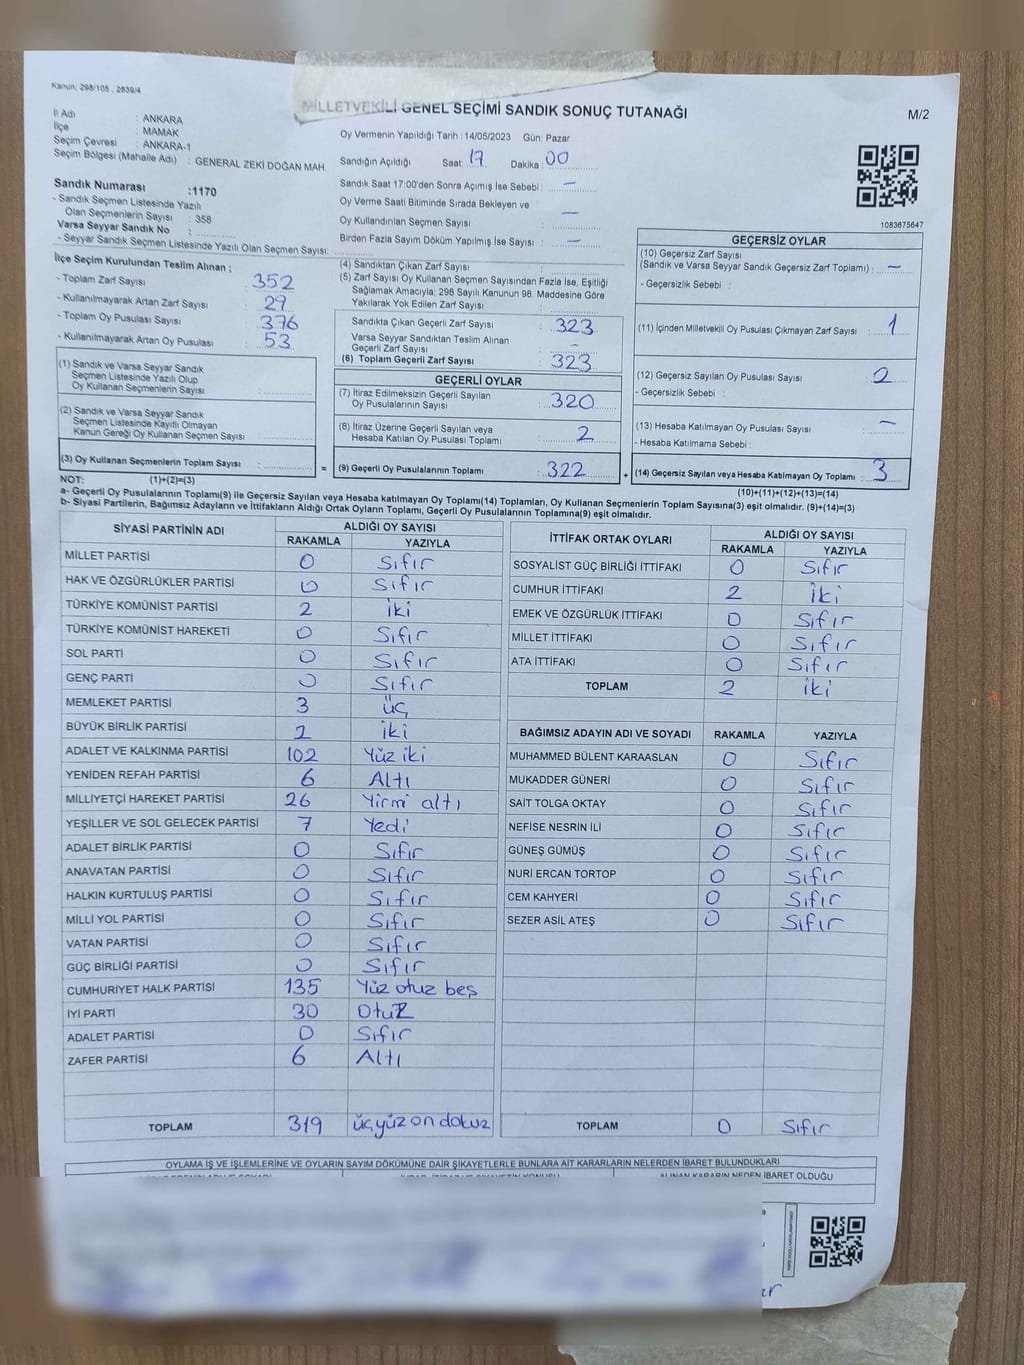 Kanun: 298/105 , 2839/4
MİLLETVEKİLİ GENEL SEÇİMİ SANDIK SONUÇ TUTANAĞI
M/2
İl Adı : ANKARA
İlçe : MAMAK
Seçim Çevresi : ANKARA-1
Seçim Bölgesi (Mahalle Adı) : GENERAL ZEKİ DOĞAN MAH
Oy Vermenin Yapıldığı Tarih :14/05/2023 Gün: Pazar
Sandığın Açıldığı Saat: 17 Dakika : 00
Sandık Saat 17:00'den Sonra Açımış İse Sebebi : —
Oy Verme Saati Bitiminde Sırada Bekleyen ve
Oy Kullandırılan Seçmen Sayısı : —
Birden Fazla Sayım Döküm Yapılmış İse Sayısı : —
1083675647
Sandık Numarası :1170
- Sandık Seçmen Listesinde Yazılı
Olan Seçmenlerin Sayısı : 358
Varsa Seyyar Sandık No :
- Seyyar Sandık Seçmen Listesinde Yazılı Olan Seçmen Sayısı:
İlçe Seçim Kurulundan Teslim Alınan ;
- Toplam Zarf Sayısı : 352
- Kullanılmayarak Artan Zarf Sayısı : 29
- Toplam Oy Pusulası Sayısı : 376
- Kullanılmayarak Artan Oy Pusulası : 53
(1) Sandık ve Varsa Seyyar Sandık
Seçmen Listesinde Yazılı Olup
Oy Kullanan Seçmenlerin Sayısı :
(2) Sandık ve Varsa Seyyar Sandık
Seçmen Listesinde Kayıtlı Olmayan
Kanun Gereği Oy Kullanan Seçmen Sayısı :
(3) Oy Kullanan Seçmenlerin Toplam Sayısı : =
(4) Sandıktan Çıkan Zarf Sayısı :
(5) Zarf Sayısı Oy Kullanan Seçmen Sayısından Fazla İse, Eşitliği
Sağlamak Amacıyla; 298 Sayılı Kanunun 98. Maddesine Göre
Yakılarak Yok Edilen Zarf Sayısı :
Sandıkta Çıkan Geçerli Zarf Sayısı : 323
Varsa Seyyar Sandıktan Teslim Alınan
Geçerli Zarf Sayısı : —
(6) Toplam Geçerli Zarf Sayısı : 323
GEÇERLİ OYLAR
(7) İtiraz Edilmeksizin Geçerli Sayılan
Oy Pusulalarının Sayısı : 320
(8) İtiraz Üzerine Geçerli Sayılan veya
Hesaba Katılan Oy Pusulası Toplamı : 2
(9) Geçerli Oy Pusulalarının Toplamı : 322 +
GEÇERSİZ OYLAR
(10) Geçersiz Zarf Sayısı
(Sandık ve Varsa Seyyar Sandık Geçersiz Zarf Toplamı) : —
- Geçersizlik Sebebi :
(11) İçinden Milletvekili Oy Pusulası Çıkmayan Zarf Sayısı : 1
(12) Geçersiz Sayılan Oy Pusulası Sayısı : 2
- Geçersizlik Sebebi :
(13) Hesaba Katılmayan Oy Pusulası Sayısı : —
- Hesaba Katılmama Sebebi :
(14) Geçersiz Sayılan veya Hesaba Katılmayan Oy Toplamı : 3
NOT: (1)+(2)=(3)
(10)+(11)+(12)+(13)=(14)
a- Geçerli Oy Pusulalarının Toplamı(9) ile Geçersiz Sayılan veya Hesaba katılmayan Oy Toplamı(14) Toplamları, Oy Kullanan Seçmenlerin Toplam Sayısına(3) eşit olmalıdır. (9)+(14)=(3)
b- Siyasi Partilerin, Bağımsız Adayların ve İttifakların Aldığı Ortak Oyların Toplamı, Geçerli Oy Pusulalarının Toplamına(9) eşit olmalıdır.
SİYASİ PARTİNİN ADI ALDIĞI OY SAYISI
RAKAMLA YAZIYLA
MİLLET PARTİSİ 0 Sıfır
HAK VE ÖZGÜRLÜKLER PARTİSİ 0 Sıfır
TÜRKİYE KOMÜNİST PARTİSİ 2 iki
TÜRKİYE KOMÜNİST HAREKETİ 0 Sıfır
SOL PARTİ 0 Sıfır
GENÇ PARTİ 0 Sıfır
MEMLEKET PARTİSİ 3 üç
BÜYÜK BİRLİK PARTİSİ 2 iki
ADALET VE KALKINMA PARTİSİ 102 Yüz iki
YENİDEN REFAH PARTİSİ 6 Altı
MİLLİYETÇİ HAREKET PARTİSİ 26 Yirmi altı
YEŞİLLER VE SOL GELECEK PARTİSİ 7 Yedi
ADALET BİRLİK PARTİSİ 0 Sıfır
ANAVATAN PARTİSİ 0 Sıfır
HALKIN KURTULUŞ PARTİSİ 0 Sıfır
MİLLİ YOL PARTİSİ 0 Sıfır
VATAN PARTİSİ 0 Sıfır
GÜÇ BİRLİĞİ PARTİSİ 0 Sıfır
CUMHURİYET HALK PARTİSİ 135 Yüz otuz beş
İYİ PARTİ 30 Otuz
ADALET PARTİSİ 0 Sıfır
ZAFER PARTİSİ 6 Altı
TOPLAM 319 üçyüz on dokuz
İTTİFAK ORTAK OYLARI ALDIĞI OY SAYISI
RAKAMLA YAZIYLA
SOSYALİST GÜÇ BİRLİĞİ İTTİFAKI 0 Sıfır
CUMHUR İTTİFAKI 2 İki
EMEK VE ÖZGÜRLÜK İTTİFAKI 0 Sıfır
MİLLET İTTİFAKI 0 Sıfır
ATA İTTİFAKI 0 Sıfır
TOPLAM 2 iki
BAĞIMSIZ ADAYIN ADI VE SOYADI RAKAMLA YAZIYLA
MUHAMMED BÜLENT KARAASLAN 0 Sıfır
MUKADDER GÜNERİ 0 Sıfır
SAİT TOLGA OKTAY 0 Sıfır
NEFİSE NESRİN İLİ 0 Sıfır
GÜNEŞ GÜMÜŞ 0 Sıfır
NURİ ERCAN TORTOP 0 Sıfır
CEM KAHYERİ 0 Sıfır
SEZER ASİL ATEŞ 0 Sıfır
TOPLAM 0 Sıfır
OYLAMA İŞ VE İŞLEMLERİNE VE OYLARIN SAYIM DÖKÜMÜNE DAİR ŞİKAYETLERLE BUNLARA AİT KARARLARIN NELERDEN İBARET BULUNDUKLARI
ALINAN KARARIN NEDEN İBARET OLDUĞU